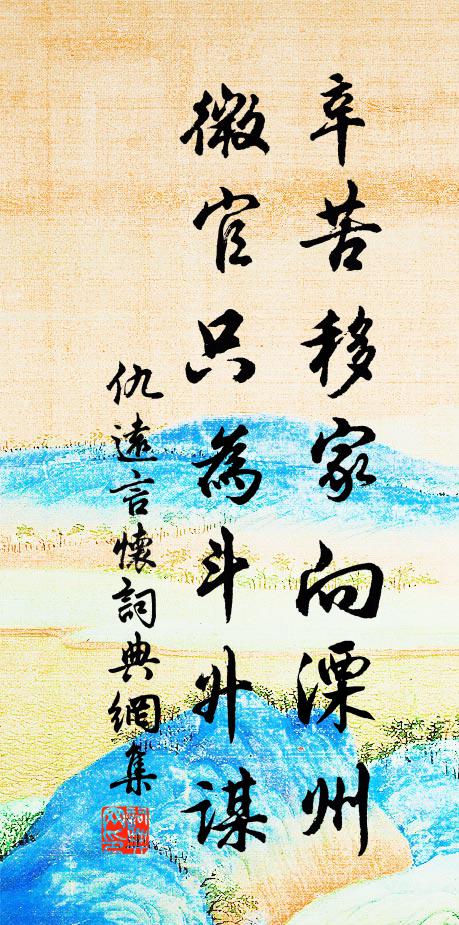 辛苦移家向溧州
微官只為斗升謀
仇遠言懷詞典網集